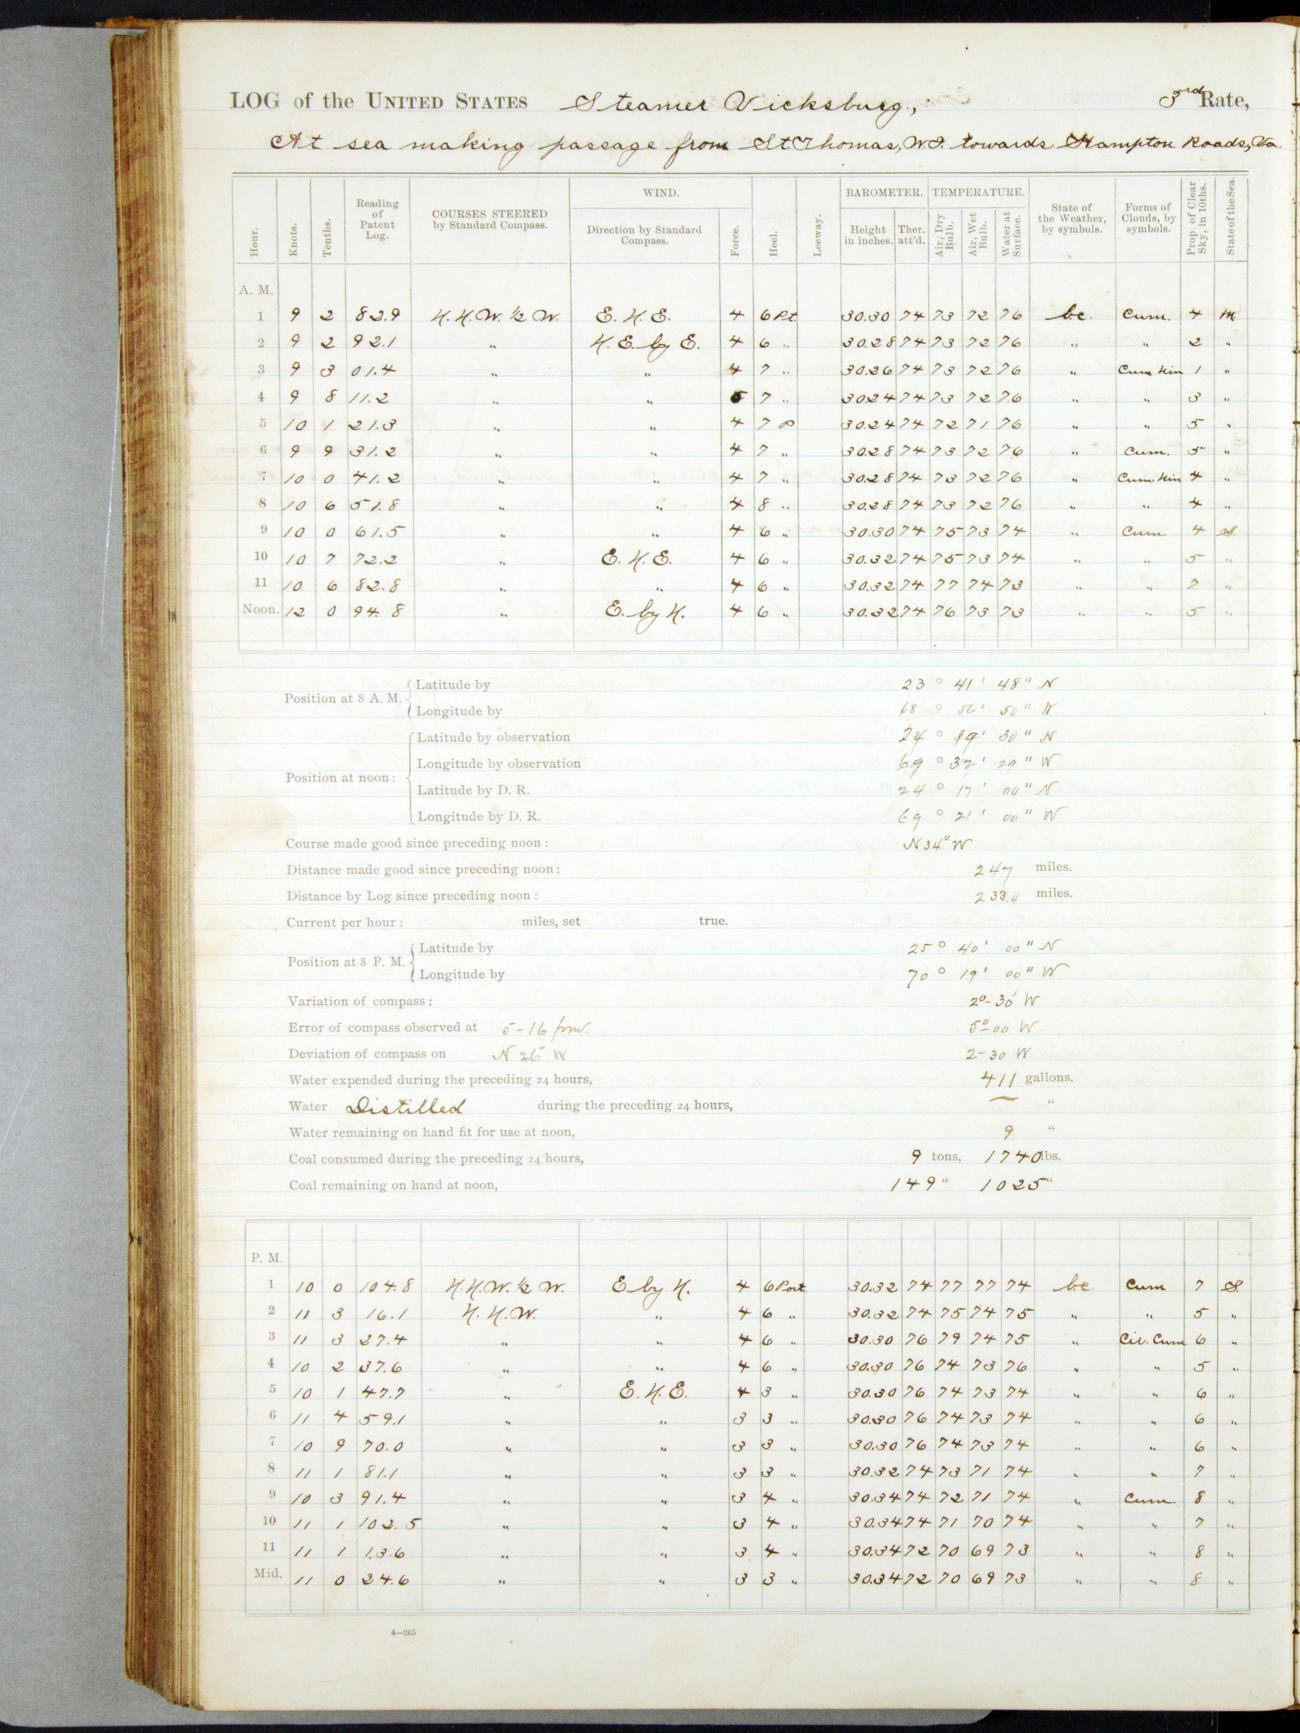 LOG of the UNITED STATES Steamer Vicksburg, 3rd Rate,
At sea making passage from St Thomas, W.I. towards Hampton Roads, Va.
Hour. Knots. Tenths. Reading of Patent Log. COURSES STEERED by Standard Compass. WIND. Direction by Standard Compass. Force. Heel. Leeway. BAROMETER. Height in inches. Ther. att'd. TEMPERATURE. Air, Dry Bulb. Air, Wet Bulb. Water at Surface. State of the Weather, by symbols. Forms of Clouds, by symbols. Prop. of Clear Sky, in 10ths. State of the Sea.
A. M.
1 9 2 82.9 N.N.W. ½ W. E.N.E. 4 6 Pt 30.30 74 73 72 76 b.c. Cum. 4 M
2 9 2 92.1 " N.E. by E. 4 6 " 30.28 74 73 72 76 " " 2 "
3 9 3 01.4 " " 4 7 " 30.26 74 73 72 76 " Cum Nim 1 "
4 9 8 11.2 " " 5 7 " 30.24 74 73 72 76 " " 3 "
5 10 1 21.3 " " 4 7 P 30.24 74 72 71 76 " " 5 "
6 9 9 31.2 " " 4 7 " 30.28 74 73 72 76 " Cum. 5 "
7 10 0 41.2 " " 4 7 " 30.28 74 73 72 76 " Cum Nim 4 "
8 10 6 51.8 " " 4 8 " 30.28 74 73 72 76 " " 4 "
9 10 0 61.5 " " 4 6 " 30.30 74 75 73 74 " Cum 4 S
10 10 7 72.2 " E.N.E. 4 6 " 30.32 74 75 73 74 " " 5 "
11 10 6 82.8 " " 4 6 " 30.32 74 77 74 73 " " 7 "
Noon. 12 0 94.8 " E. by N. 4 6 " 30.32 74 76 73 73 " " 5 "
Position at 8 A. M. Latitude by 23° 41' 48" N
Longitude by 68° 56' 50" W
Position at noon: Latitude by observation 24° 19' 30" N
Longitude by observation 69° 32' 29" W
Latitude by D. R. 24° 17' 00" N
Longitude by D. R. 69° 21' 00" W
Course made good since preceding noon: N 34° W
Distance made good since preceding noon: 247 miles.
Distance by Log since preceding noon: 233.4 miles.
Current per hour: miles, set true.
Position at 8 P. M. Latitude by 25° 40' 00" N
Longitude by 70° 19' 00" W
Variation of compass: 2°-30' W
Error of compass observed at 5-16 p.m. 5°-00 W
Deviation of compass on N 26° W 2-30 W
Water expended during the preceding 24 hours, 411 gallons.
Water Distilled during the preceding 24 hours, — "
Water remaining on hand fit for use at noon, 9 "
Coal consumed during the preceding 24 hours, 9 tons, 1740 lbs.
Coal remaining on hand at noon, 149 " 1025 "
P. M.
1 10 0 104.8 N.N.W. ½ W. E by N. 4 6 Port 30.32 74 77 77 74 b.c. Cum 7 S.
2 11 3 16.1 N.N.W. " 4 6 " 30.32 74 75 74 75 " " 5 "
3 11 3 27.4 " " 4 6 " 30.30 76 79 74 75 " Cir. Cum 6 "
4 10 2 37.6 " " 4 6 " 30.30 76 74 73 76 " " 5 "
5 10 1 47.7 " E.N.E. 4 3 " 30.30 76 74 73 74 " " 6 "
6 11 4 59.1 " " 3 3 " 30.30 76 74 73 74 " " 6 "
7 10 9 70.0 " " 3 3 " 30.30 76 74 73 74 " " 6 "
8 11 1 81.1 " " 3 3 " 30.32 74 73 71 74 " " 7 "
9 10 3 91.4 " " 3 4 " 30.34 74 72 71 74 " Cum. 8 "
10 11 1 102.5 " " 3 4 " 30.34 74 71 70 74 " " 7 "
11 11 1 13.6 " " 3 4 " 30.34 72 70 69 73 " " 8 "
Mid. 11 0 24.6 " " 3 3 " 30.34 72 70 69 73 " " 8 "
4—265